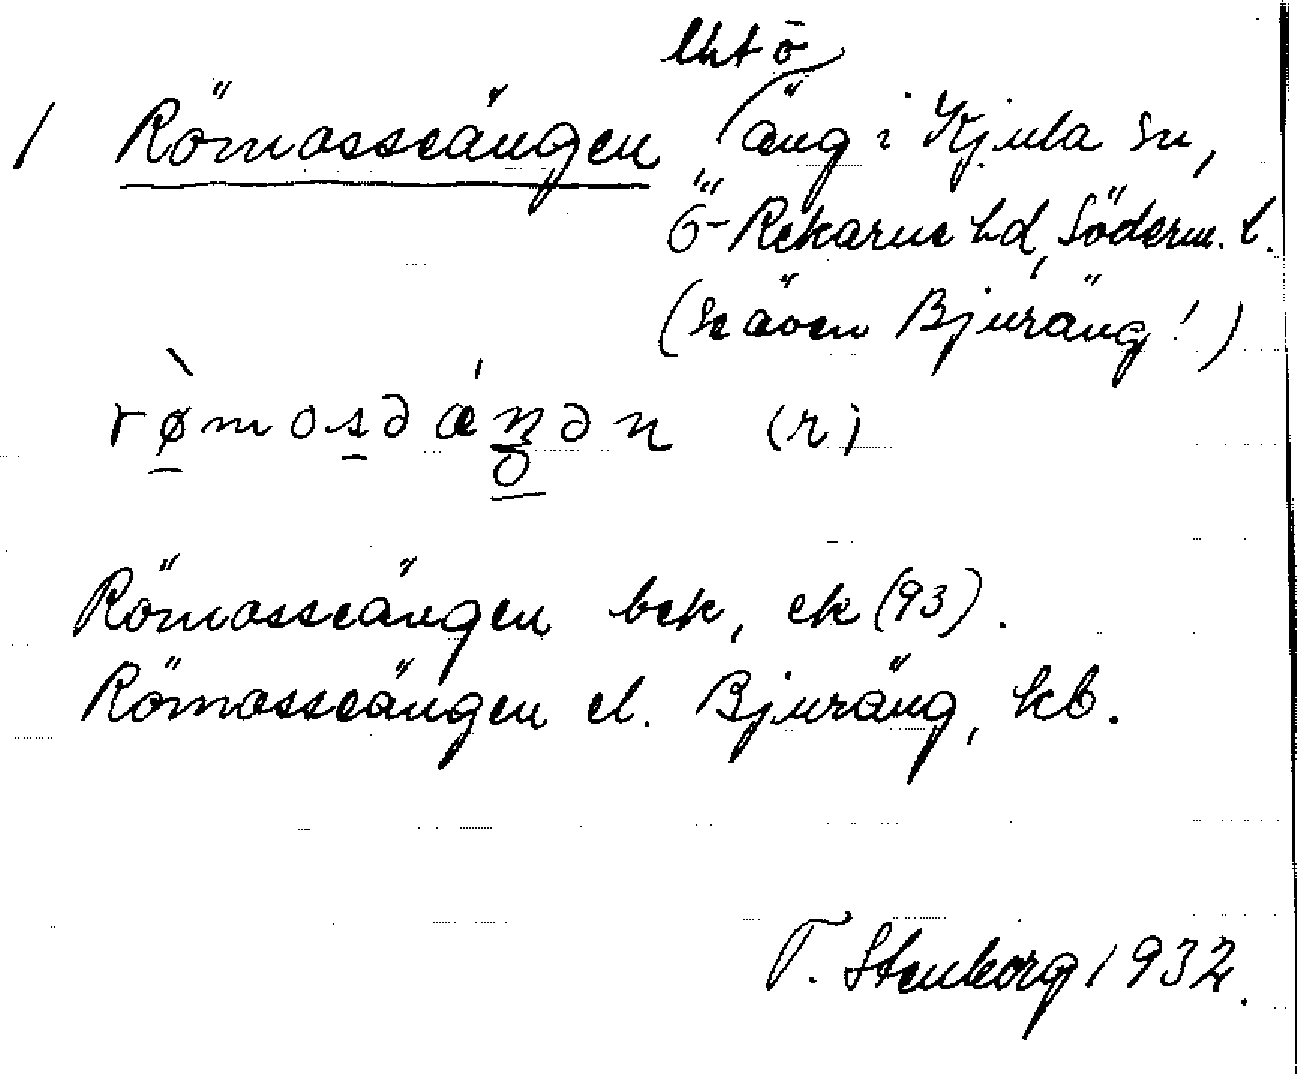 Uht ö
1 Römosseängen äng i Kjula sn,
Ö-Rekarne hd, Söderm. l.
(se även Bjuräng!)
rø̀mosəǽŋən (r)
Römosseängen bek, ek (93).
Römosseängen el. Bjuräng, kb.
T. Stenborg 1932.